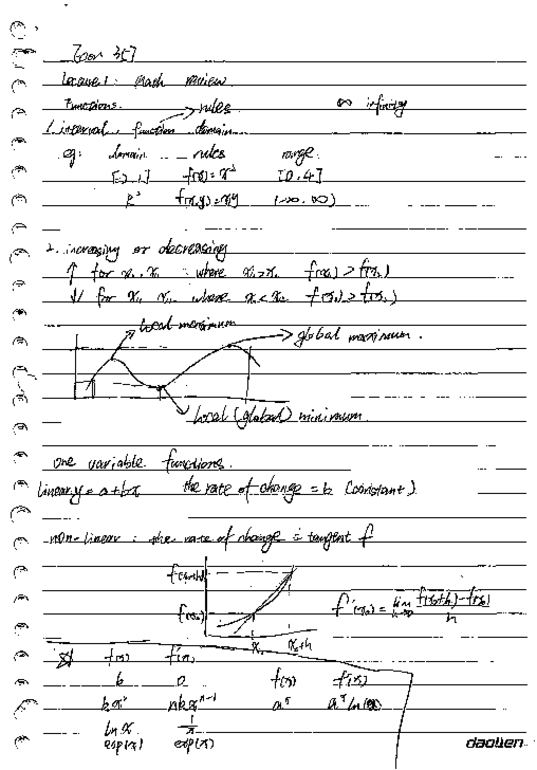 Econ 351
Lecture 1: Math review
Functions. → rules ∞ infinity
1. interval, function domain
eg: domain rules range
[-2, 1] f(x) = x² [0, 4]
R² f(x,y) = xy (-∞, ∞)
2. increasing or decreasing
↑ for x₁, x₂ where x₁ > x₂ f(x₁) > f(x₂)
↓ for x₁, x₂ where x₁ < x₂ f(x₁) > f(x₂)
local maximum
global maximum.
local (global) minimum
one variable functions.
linear y = a + bx the rate of change = b (constant)
non-linear: the rate of change = tangent f
f(x₀+h)
f(x₀)
f'(x₀) = lim h→0 f(x₀+h) - f(x₀) / h
x₀ x₀+h
☆ f(x) f'(x)
b 0 f(x) f'(x)
kxⁿ nkxⁿ⁻¹ aˣ aˣ ln(a)
ln x 1/x
exp(x) exp(x)
daolen